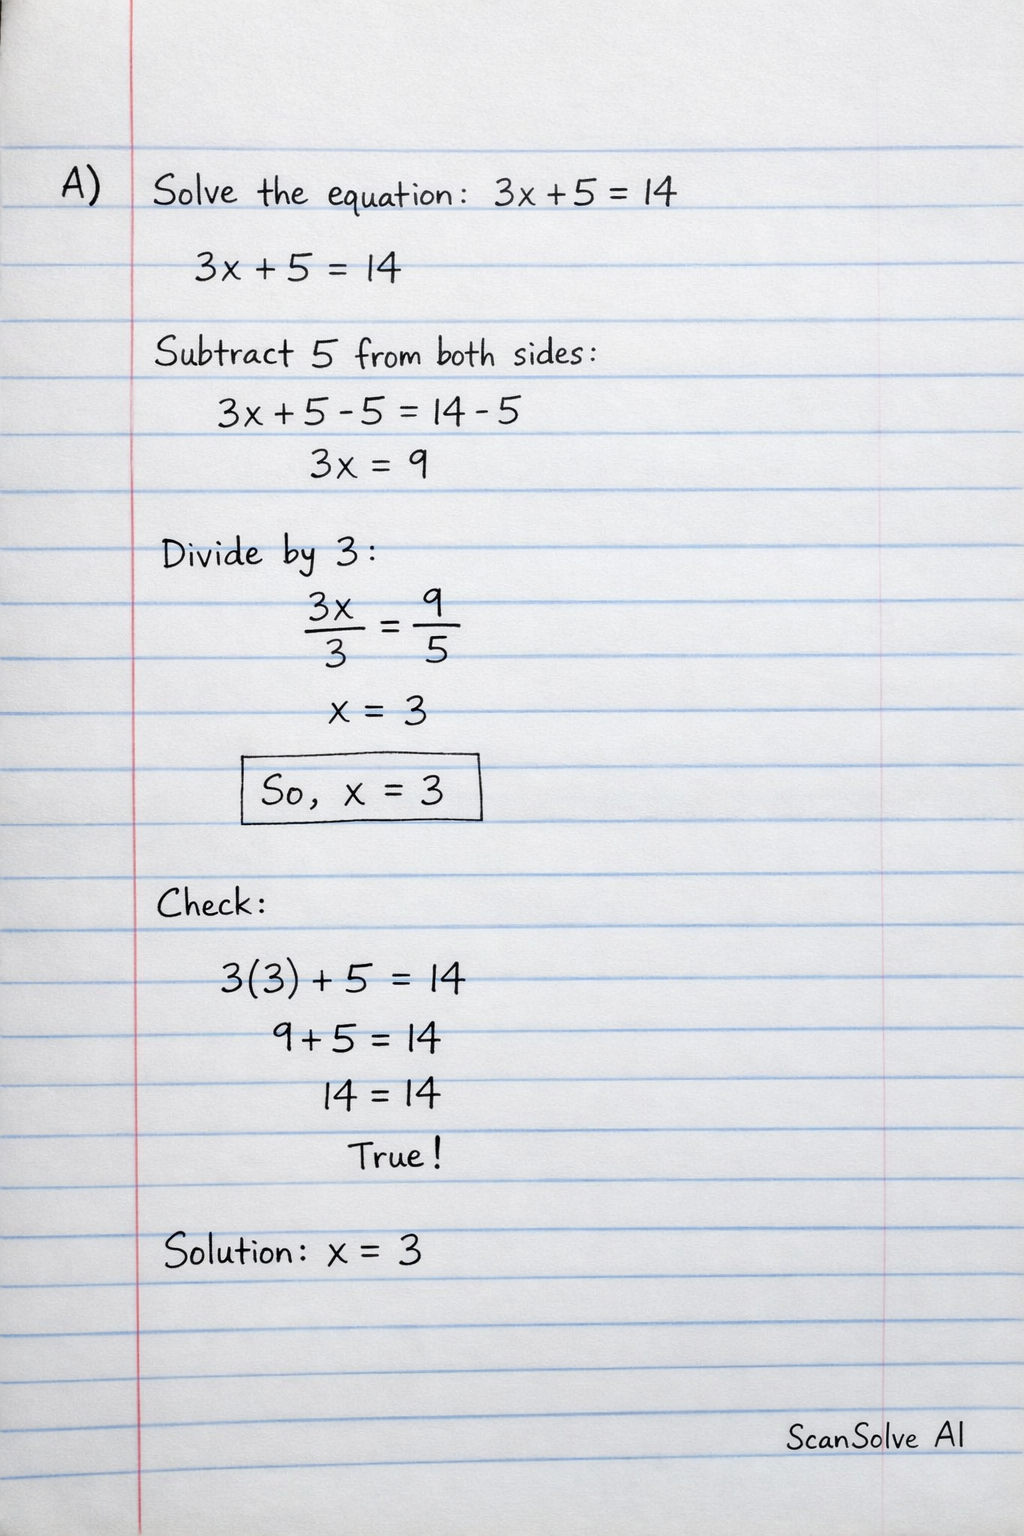 A) Solve the equation: 3x + 5 = 14
3x + 5 = 14
Subtract 5 from both sides:
3x + 5 - 5 = 14 - 5
3x = 9
Divide by 3:
3x/3 = 9/5
x = 3
So, x = 3
Check:
3(3) + 5 = 14
9 + 5 = 14
14 = 14
True!
Solution: x = 3
ScanSolve AI